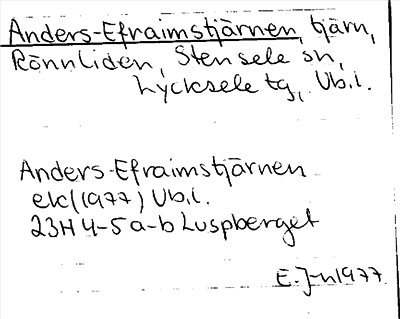 Anders-Efraimstjärnen, tjärn,
Rönnliden, Stensele sn,
Lycksele tg, Vb.l.
Anders-Efraimstjärnen
ek (1977) Vb.l.
23H 4-5 a-b Luspberget
E. J-n 1977